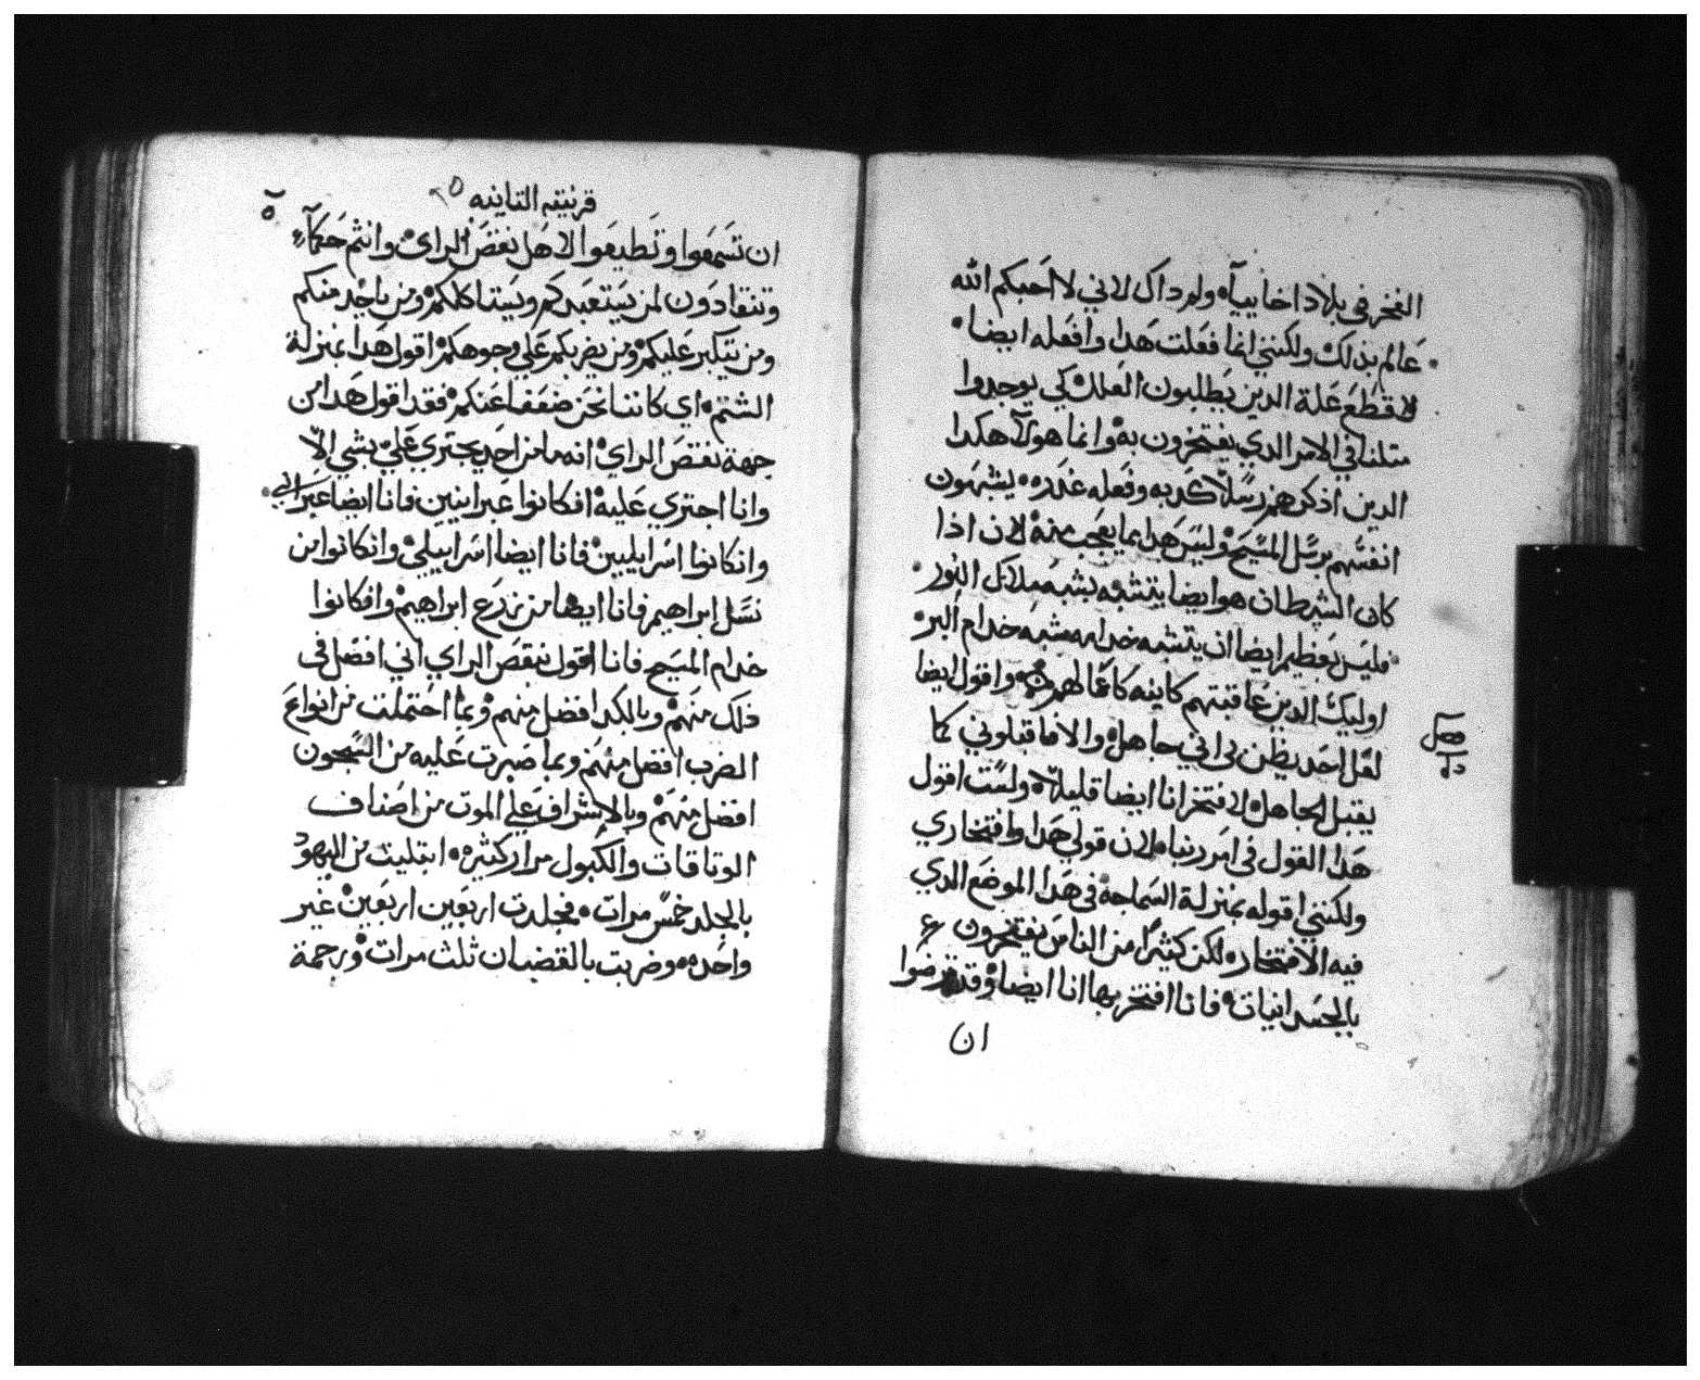 الفخر في بلاد اخاييآ ولم داك لاني لا احبكم الله
عالم بذلك ولكنني انما فعلت هدا وافعله ايضا
لاقطع علة الدين يطلبون العلل كي يوجدوا
متلنا في الامر الدي يفتخرون به وانما هولآ هكدا
الدين اذكرهم رسلا كدبه وفعله غدره يشبهون
انفسهم برسل المسيح وليس هدا بما يعجب منه لان اذا
كان الشيطان هو ايضا يتشبه بشبه ملايك النور
فليس بعظيم ايضا ان يتشبه خدامه بشبه خدام البر
اوليك الدين عاقبتهم كاينه كاعمالهم واقول ايضا
لعل احد يظن بي اني جاهل والا فاقبلوني كما
يقبل الجاهل لافتخر انا ايضا قليلا ولست اقول
هدا القول في امر ربنا لان قولي هدا وافتخاري
ولكنني اقوله بمنزلة السماجة في هدا الموضع الدي
فيه الافتخار لكن كثيرا من الناس يفتخرون
بالجسدانيات فانا افتخر بها انا ايضا وقد ترضوا
ان
فصل
قرنيتيه التانيه
ان تسمعوا وتطيعوا لاهل نقص الراي وانتم حكمآء
وتنقادون لمن يستعبدكم ويستاكلكم ومن ياخد منكم
ومن يتكبر عليكم ومن يضربكم علي وجوهكم اقول هدا بمنزلة
الشتم اي كاننا نحن ضعفا عنكم فقد اقول هدا من
جهة نقص الراي انه ما من احد يجتري علي شي الا
وانا اجتري عليه افكانوا عبرانيين فانا ايضا عبراني
وانكانوا اسراييليين فانا ايضا اسراييلي وانكانوا من
نسل ابراهيم فانا ايضا من زرع ابراهيم وافكانوا
خدام المسيح فانا اقول بنقص الراي اني افضل في
ذلك منهم وبالكد افضل منهم وبما احتملت من انواع
الضرب افضل منهم وبما صبرت عليه من السجون
افضل منهم وبالاشراف علي الموت من اصناف
الوتاقات والكبول مرار كثيره ابتليت من اليهود
بالجلد خمس مرات فجلدت اربعين اربعين غير
واحده وضربت بالقضبان ثلث مرات ورجمة